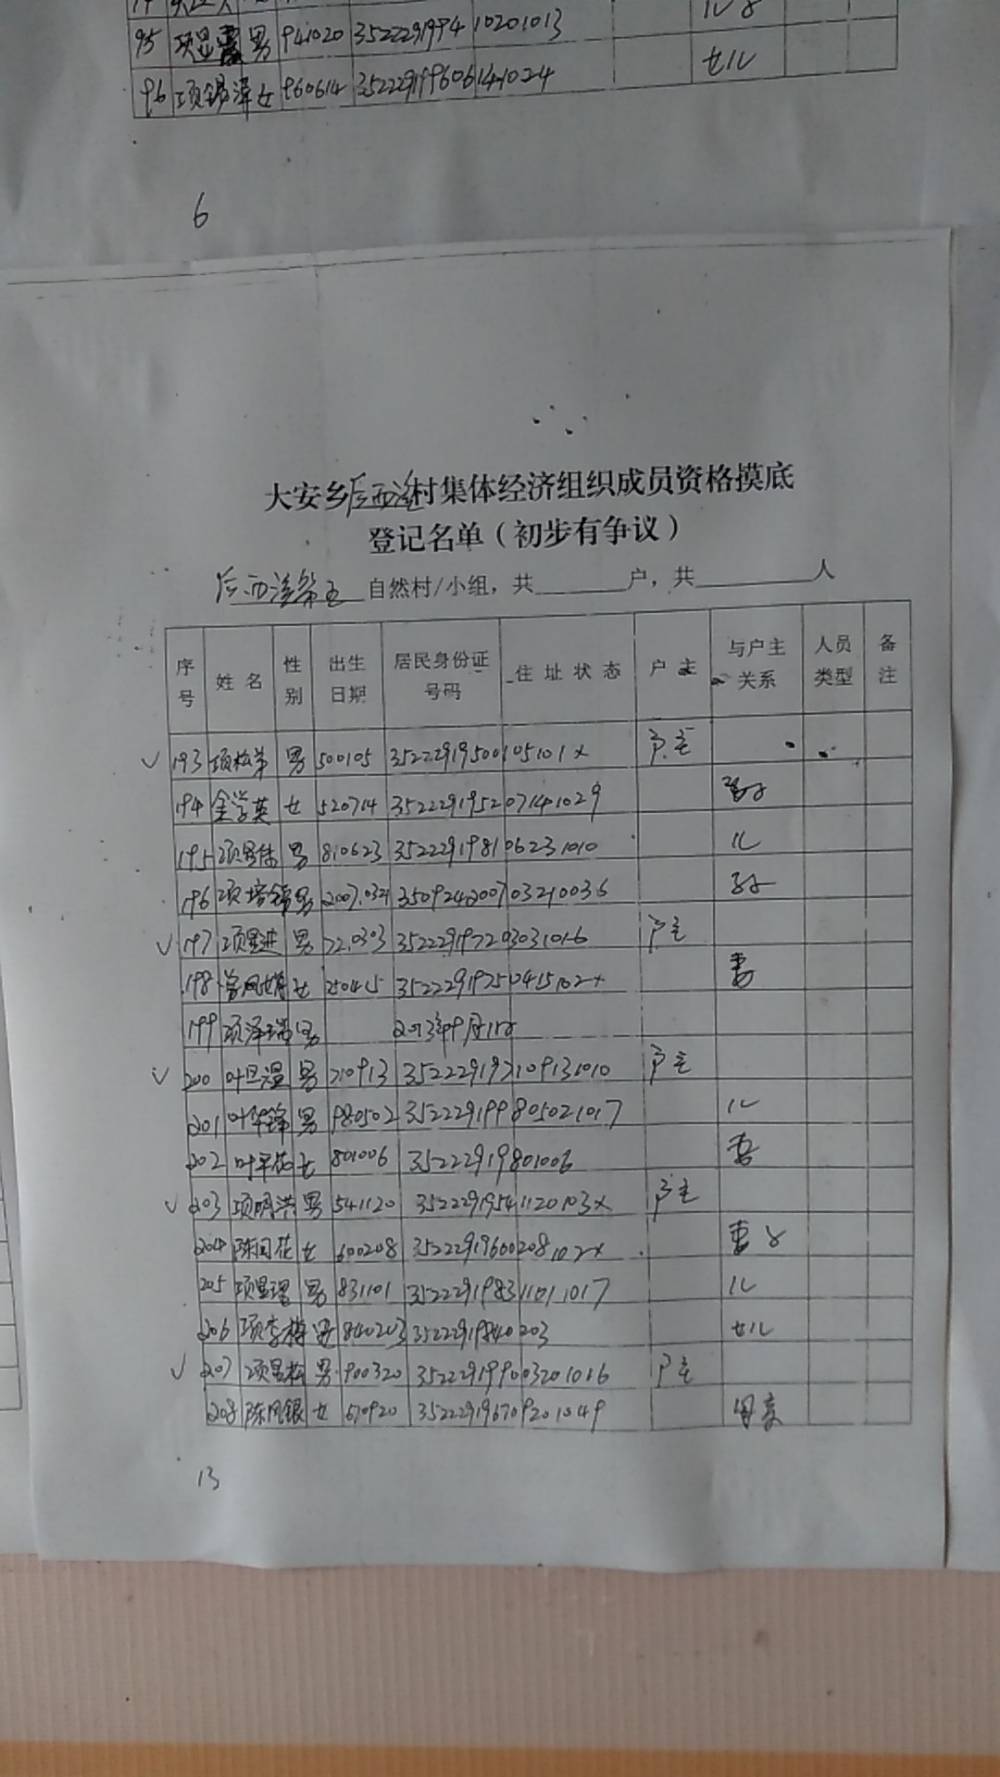 95 项显 男 941020 352229199410201013
96 项锡泽 女 960614 352229199606141024 女儿
6
大安乡后西洋村集体经济组织成员资格摸底
登记名单（初步有争议）
后西 自然村/小组，共 户，共 人
序号 姓名 性别 出生日期 居民身份证号码 住址状态 户主 与户主关系 人员类型 备注
193 项松弟 男 500105 35222919500105101x 户主
194 金学英 女 520714 352229195207141029 妻子
195 项显 男 810623 352229198106231010 儿
196 项培锦 男 2007.0321 350924200703210036 孙
197 项显进 男 72.0303 352229197203031016 户主
198 女 750415 35222919750415102x 妻
199 项泽瑞 男 2013年9月11日
200 叶旦温 男 710913 352229197109131010 户主
201 叶华锋 男 980502 352229199805021017 儿
202 叶平花 女 801006 35222919801006 妻
203 项明洪 男 541120 35222919541120103x 户主
204 陈同花 女 600208 35222919600208102x 妻子
205 项显理 男 831101 352229198311011017 儿
206 项李梅 女 840203 35222919840203 女儿
207 项显松 男 900320 352229199003201016 户主
208 陈凤银 女 670920 352229196709201049 母亲
13